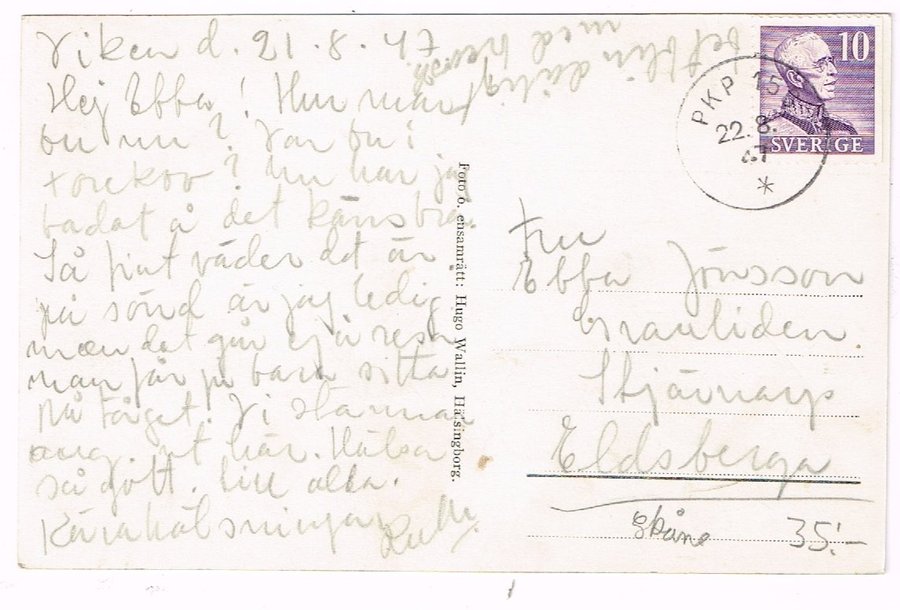 Viken d. 21.8.47
Hej Ebba! Hur mår
du nu? Var du i
Torekov? Nu har jag
badat å det känns bra.
Så fint väder det är
på sönd är jag ledig
men det går ej å resa
man får ju bara sitta
på tåget. Vi stannar
aug. ut här. Hälsa
så gott. till alla.
Kära hälsningar
det blir dåligt
med
Foto o. ensamrätt: Hugo Wallin, Hälsingborg.
10
SVERIGE
PKP 15
22.8.
47
*
Fru
Ebba Jönsson
Granliden.
Stjärnarp
Eldsberga
Skåne 35:-